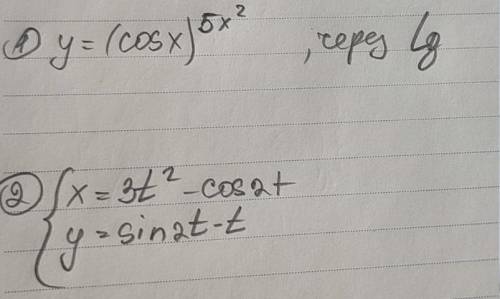 ① y = (cosx)^5x² , через lg
② { x = 3t² - cos2t
y = sin2t - t